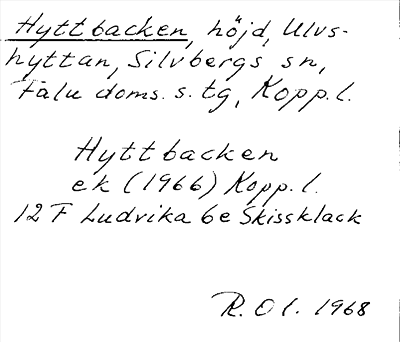 Hyttbacken, höjd, Ulvs-
hyttan, Silvbergs sn,
Falu doms. s. tg, Kopp. l.
Hyttbacken
ek (1966) Kopp. l.
12 F Ludvika 6e Skissklack
R. Ol. 1968